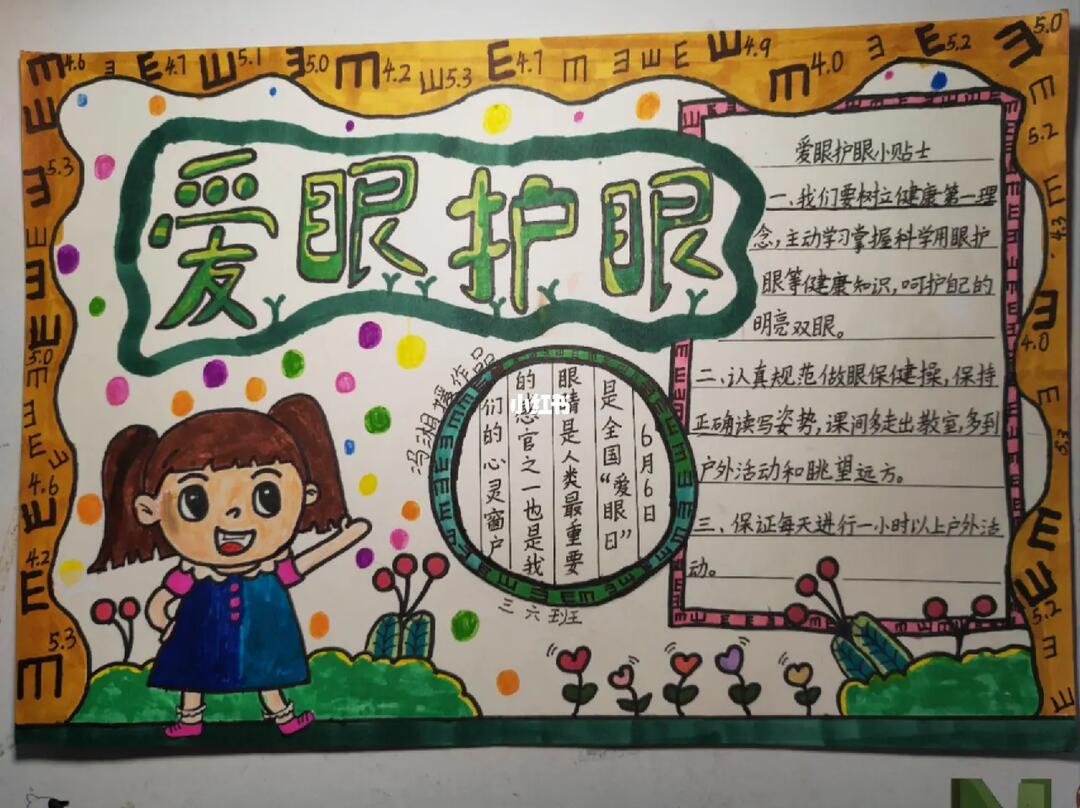 E 4.6 E E 4.7 E 5.1 E 5.0 E 4.2 E 5.3 E 4.7 E E E E E 4.9 E 4.0 E E 5.2 E 5.0
5.3
5.0
4.6
4.2
5.3
爱眼护眼
爱眼护眼小贴士
一、我们要树立健康第一理
念，主动学习掌握科学用眼护
眼等健康知识，呵护自己的
明亮双眼。
二、认真规范做眼保健操，保持
正确读写姿势，课间多走出教室，多到
户外活动和眺望远方。
三、保证每天进行一小时以上户外活
动。
6月6日
是全国“爱眼日”
眼睛是人类最重要
的感官之一也是我
们的心灵窗户
小红书
作品
三六班
5.2
4.3
4.0
5.3
5.2